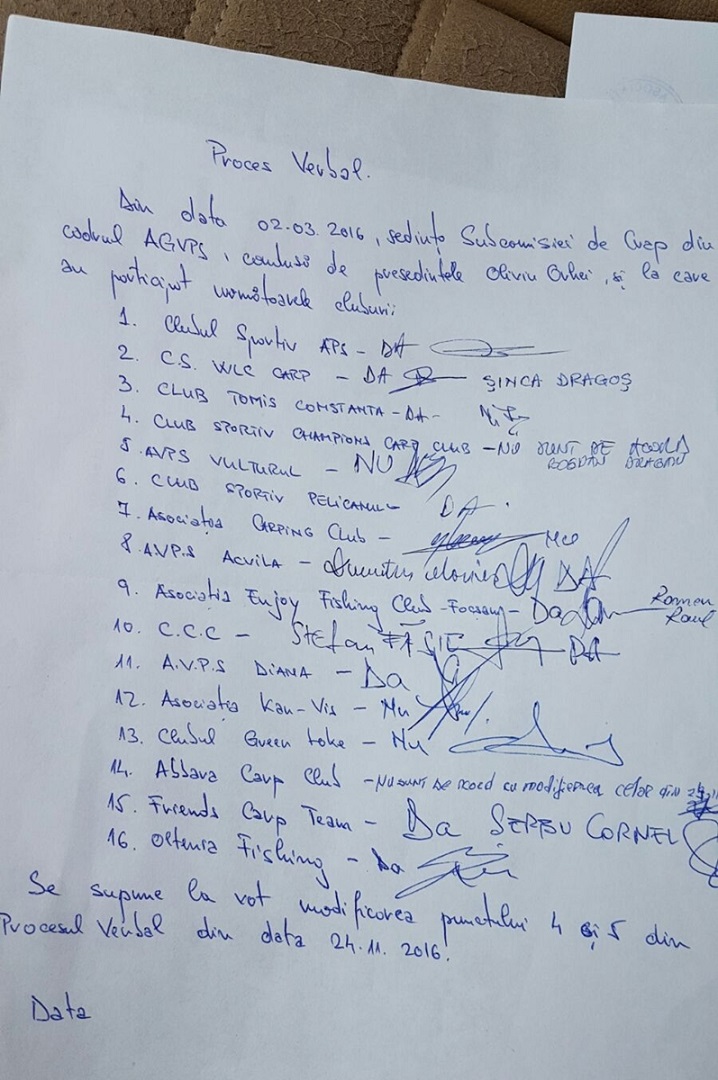 Proces Verbal.
Din data 02.03.2016, sedinta Subcomisiei de Crap din
cadrul AGVPS, condusă de presedintele Oliviu Orhei, și la care
au participat următoarele cluburi:
1. Clubul Sportiv APS - DA
2. C.S. WLC CARP - DA ȘINCA DRAGOȘ
3. CLUB TOMIS CONSTANTA - DA -
4. CLUB SPORTIV CHAMPIONS CARP CLUB - NU SUNT DE ACORD
BOGDAN DRAGAN
5. AVPS VULTURUL - NU
6. CLUB SPORTIV PELICANUL - DA.
7. Asociația CARPING Club -
8. A.V.P.S ACVILA - Dumitru DA
9. Asociatia Enjoy Fishing Club - Focsani - Da Romeu
Raul
10. C.C.C - Stefan DA
11. A.V.P.S DIANA - Da
12. Asociația Kan-Vis - Nu
13. Clubul Green Lake - Nu
14. Abbava Carp Club - NU SUNT DE acord cu modificarea celor din
15. Friends Carp Team - Da SERBU CORNEL
16. Oltenia Fishing - Da
Se supune la vot modificarea punctului 4 și 5 din
Procesul Verbal din data 24.11.2016.
Data